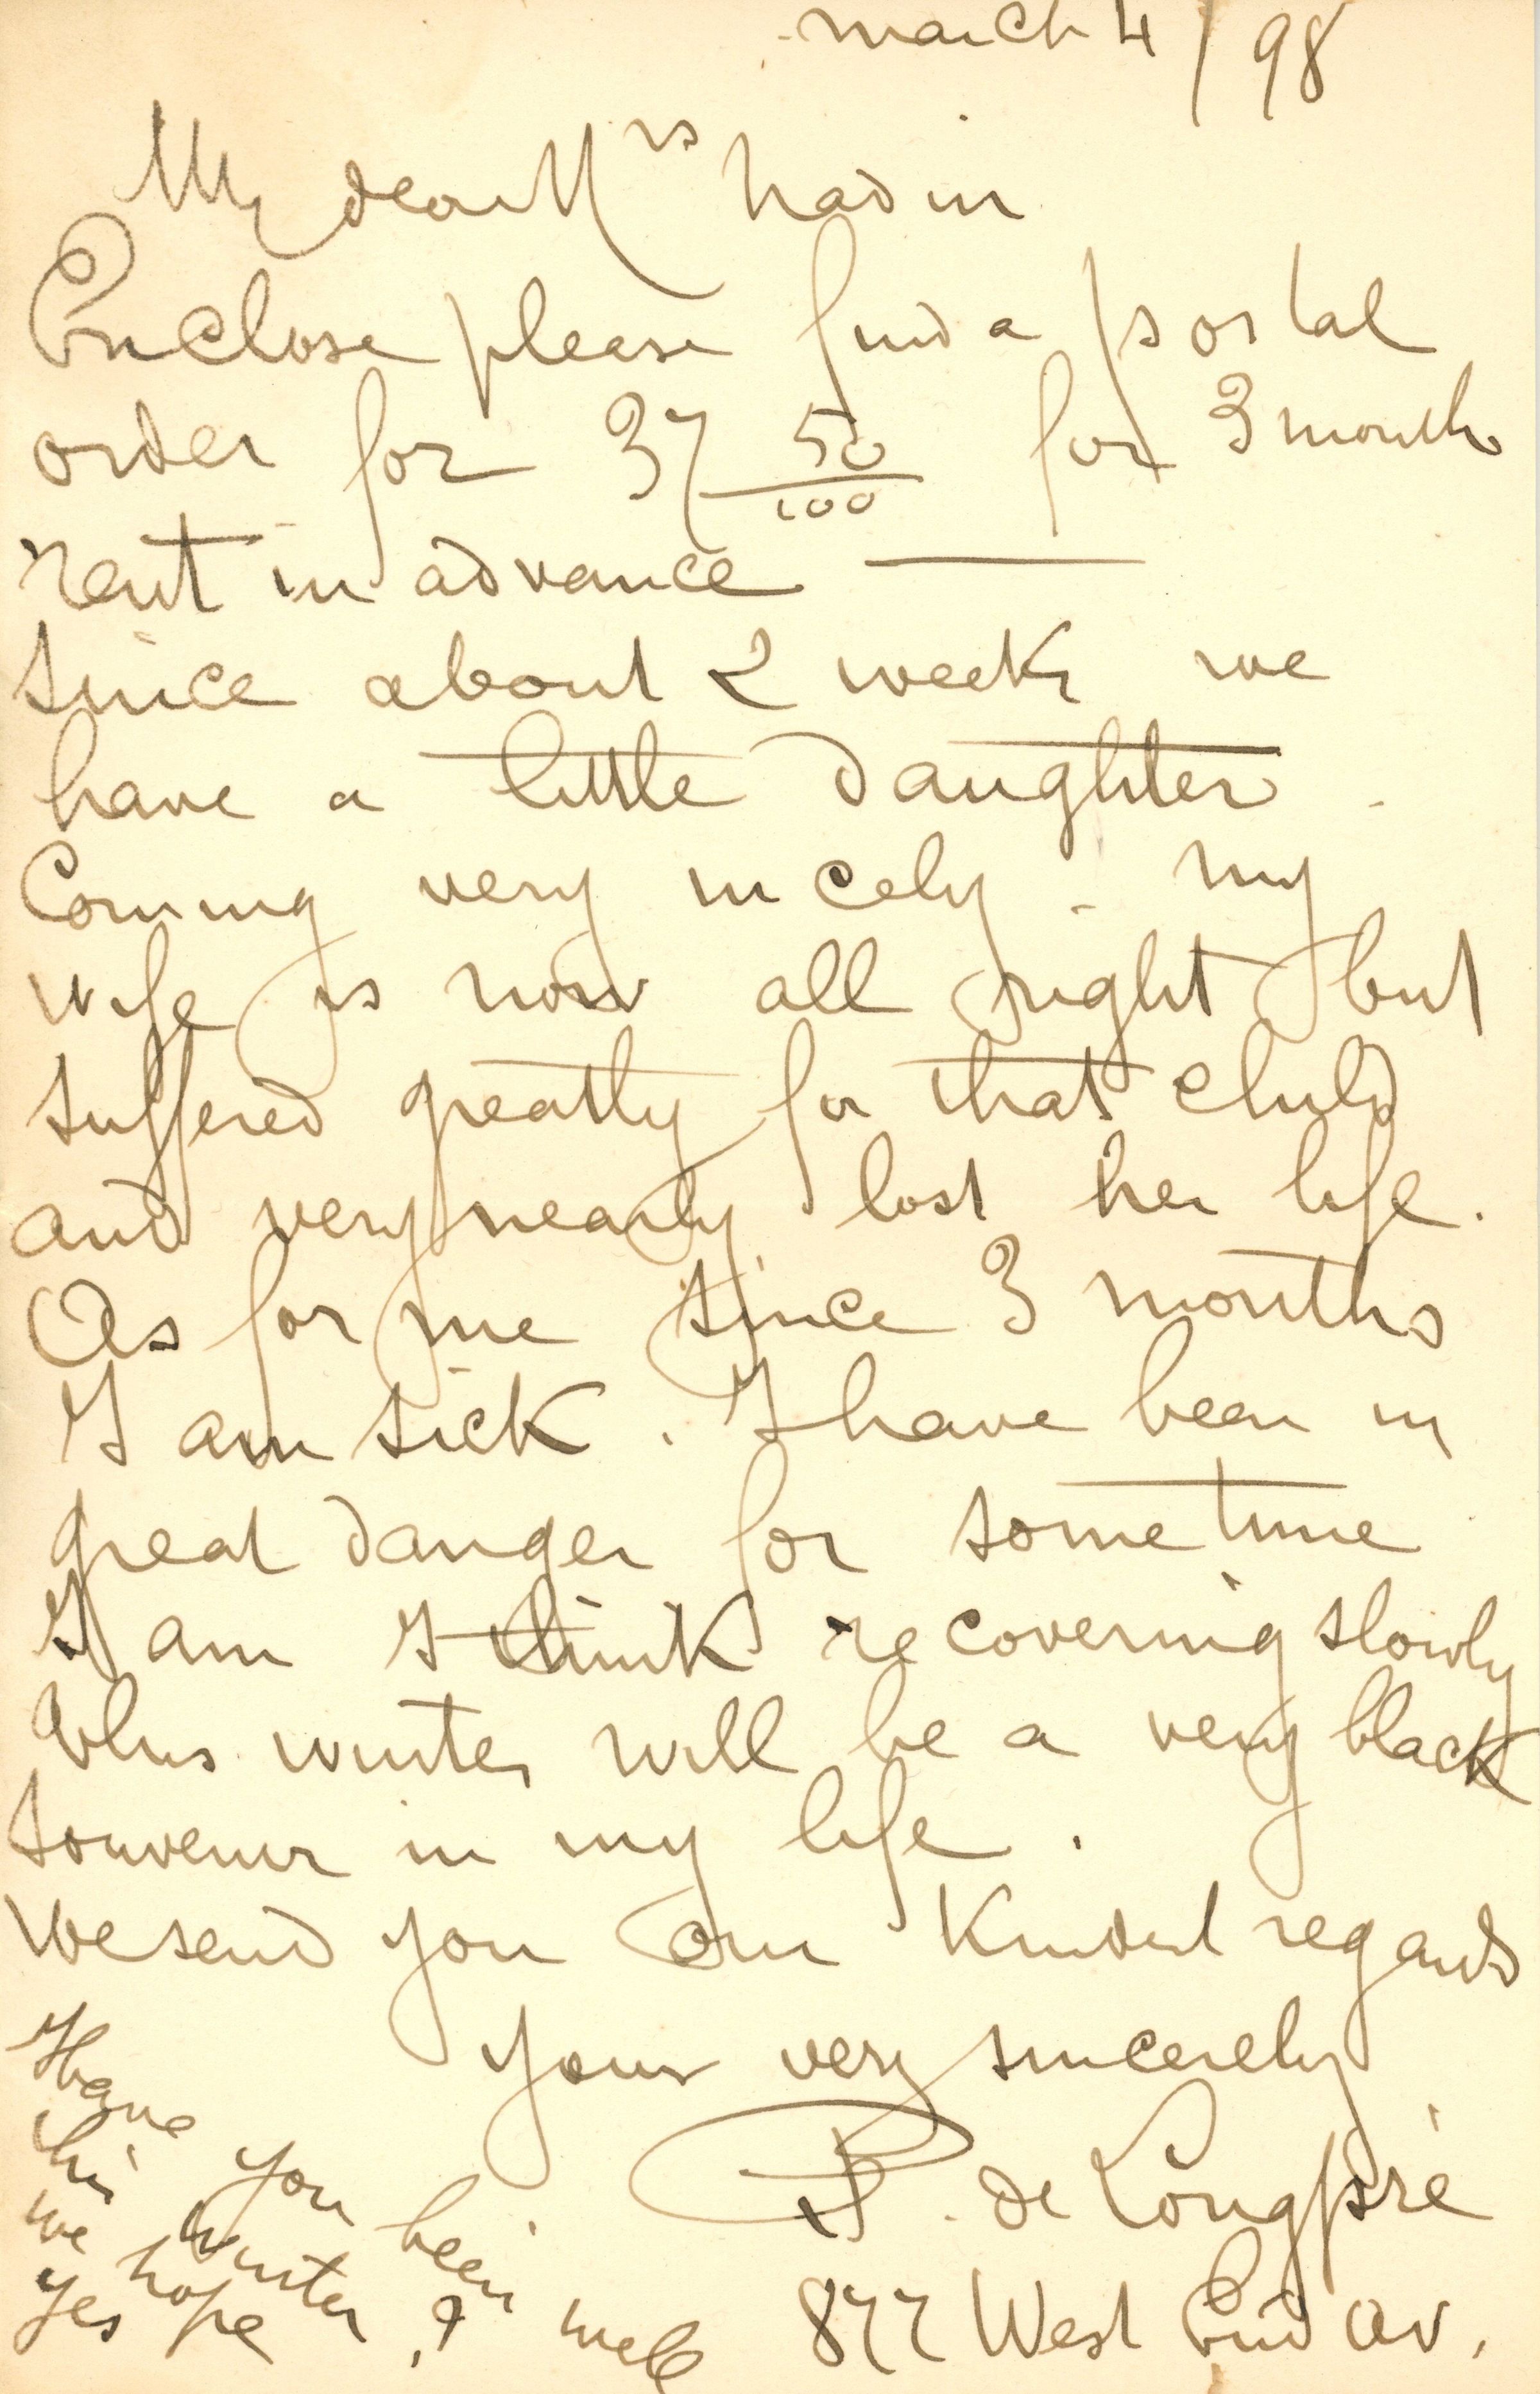 March 4/98
My dear Mrs Hadin
Enclose please find a postal
order for 37 50/100 for 3 month
rent in advance —
Since about 2 weeks we
have a little daughter.
Coming very nicely - my
wife is now all right but
suffered greatly for that child
and very nearly lost her life.
As for me since 3 months
I am sick. I have been in
great danger for some time
I am I think recovering slowly
this winter will be a very black
souvenir in my life.
We send you our kindest regards
Yours very sincerely
P. de Longpré
877 West End av.
Have you been well
this winter, ?
we hope
yes